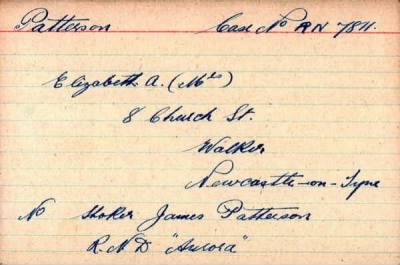 Patterson Case No RN 7811.
Elizabeth A. (Mrs)
8 Church St.
Walker
Newcastle-on-Tyne
No Stoker James Patterson
R.N.D "Aurora"